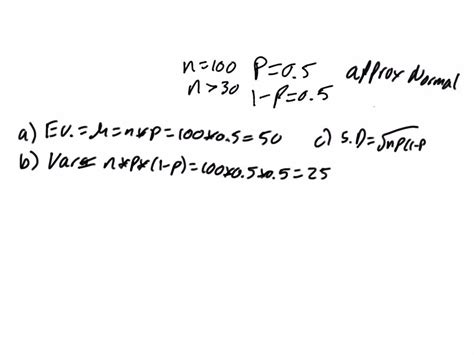 n=100 P=0.5 approx Normal
n>30 1-P=0.5
a) E.V.=μ=n*P=100*0.5=50 c) S.D=√nP(1-P
b) Var= n*P*(1-P)=100*0.5*0.5=25